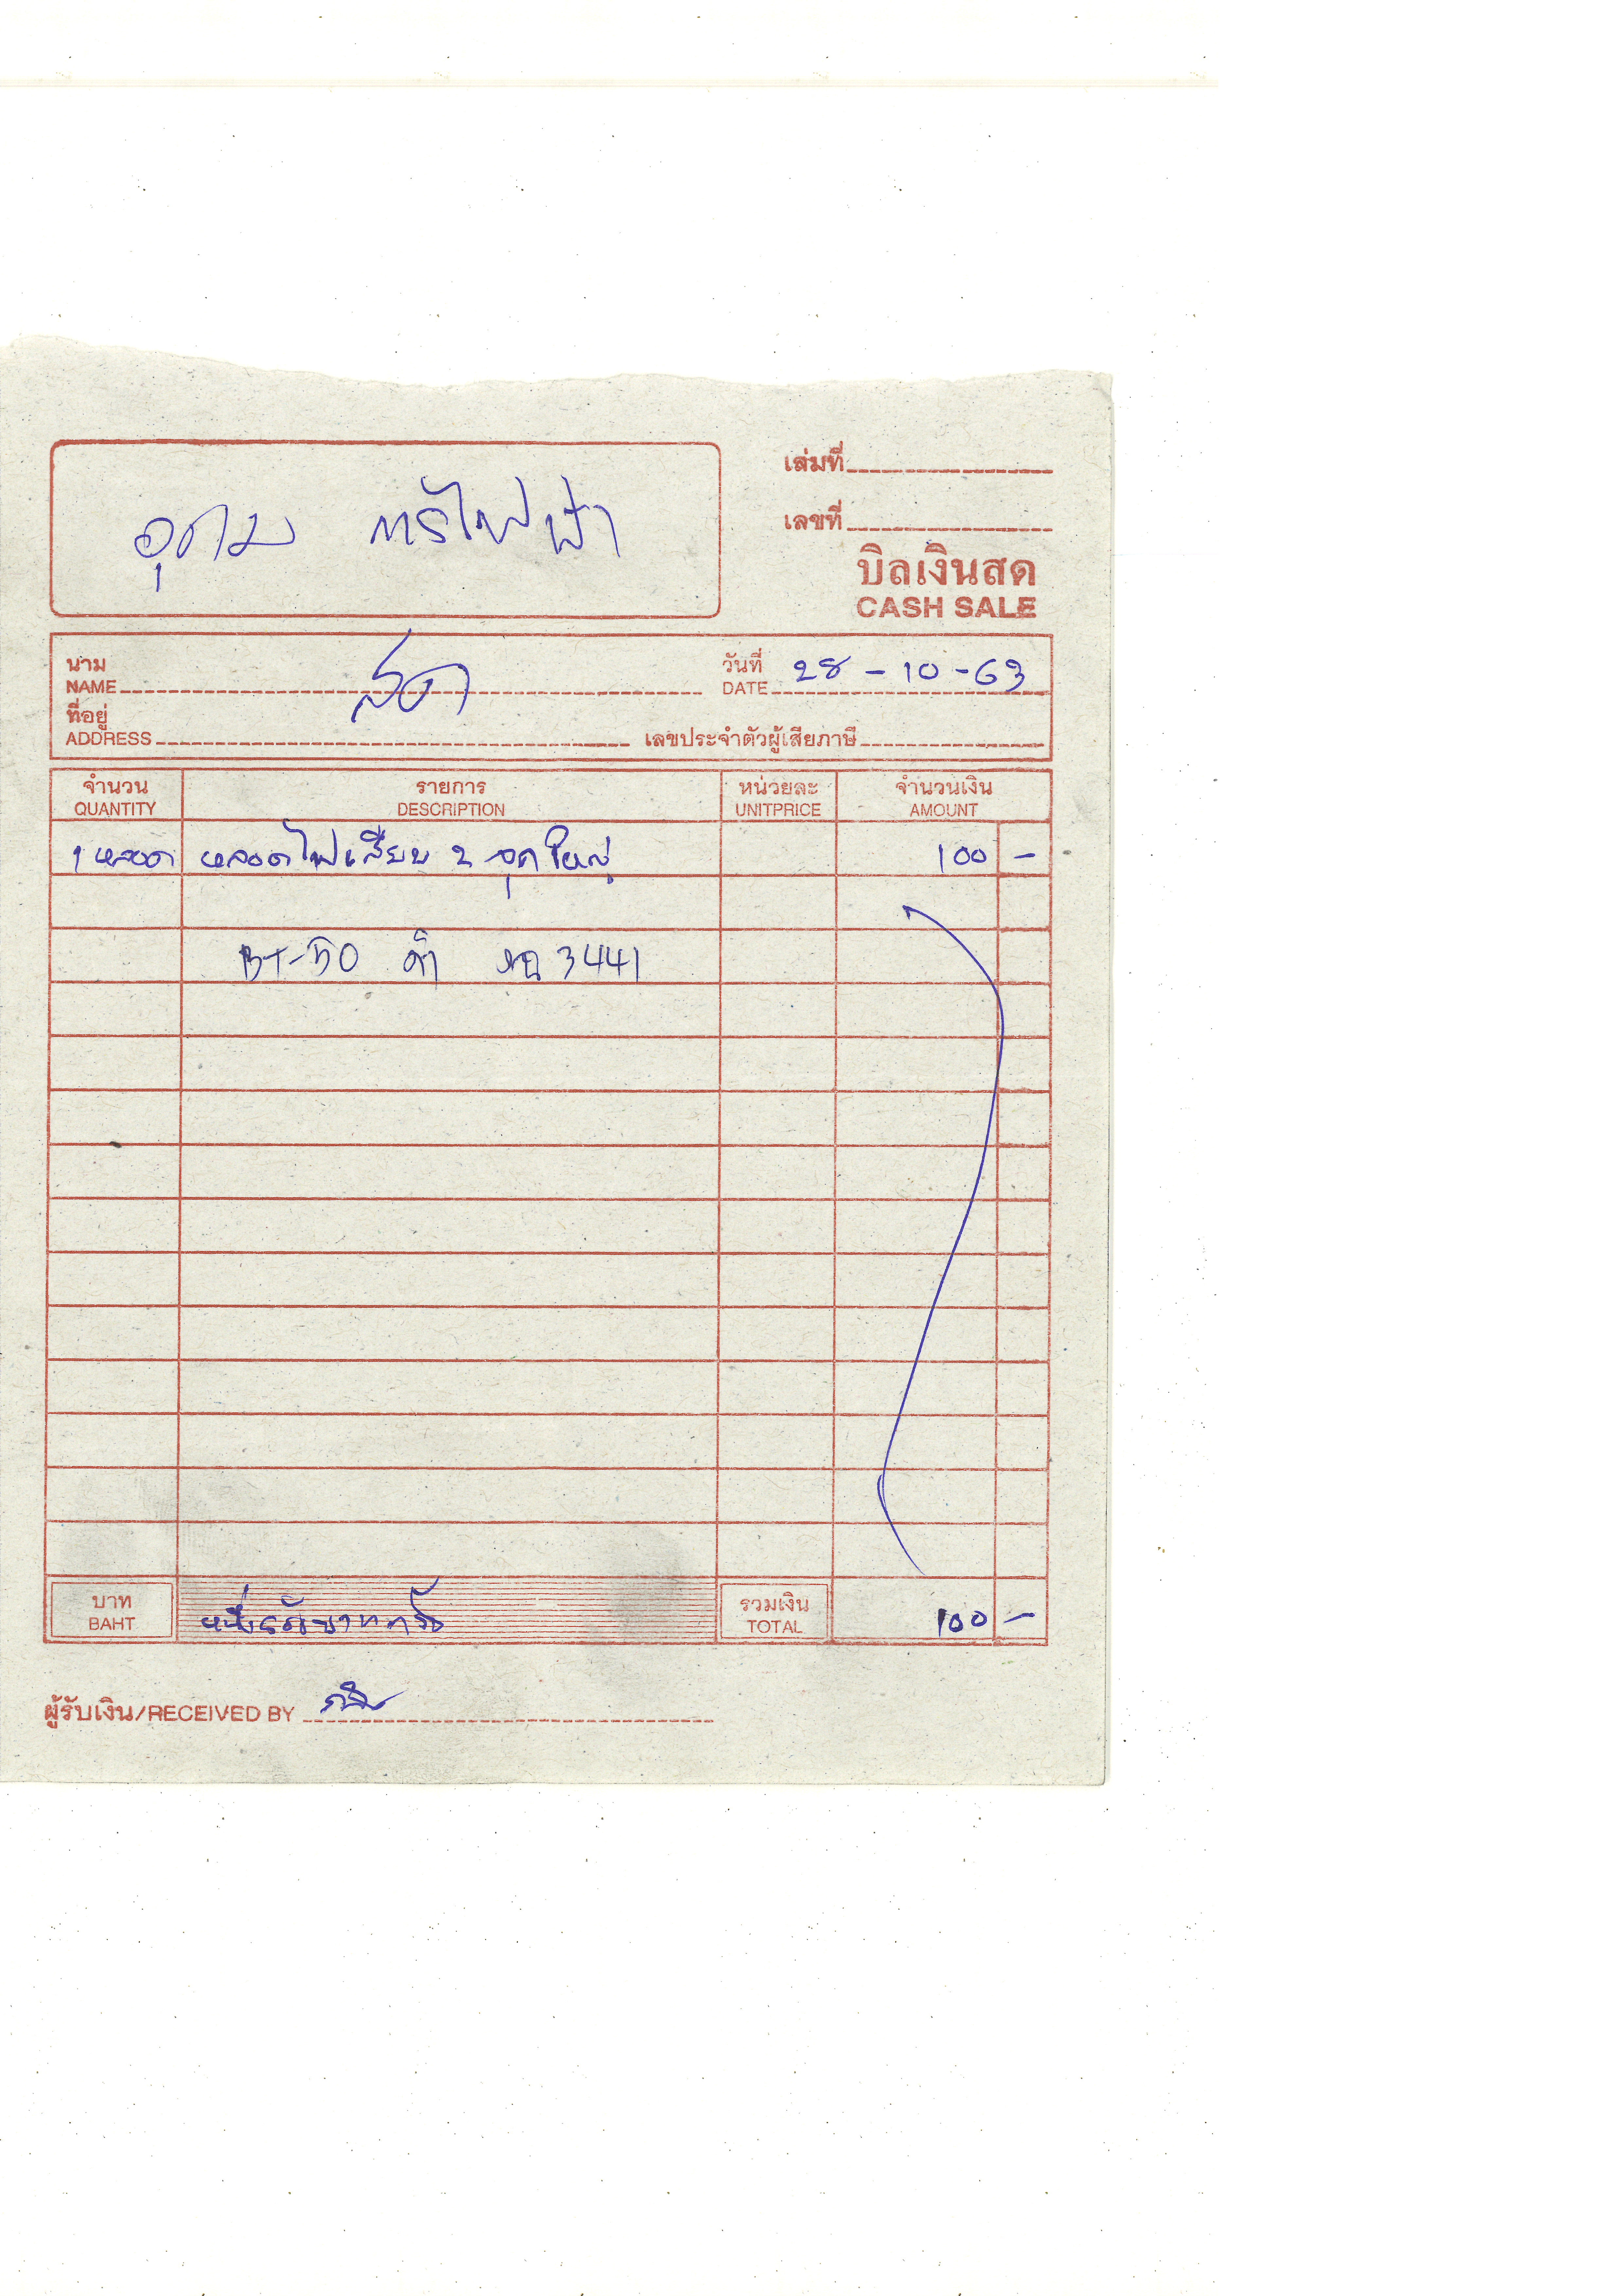 เล่มที่
อุดม การไฟฟ้า
เลขที่
บิลเงินสด
CASH SALE
นาม
NAME สด
วันที่
DATE 28-10-63
ที่อยู่
ADDRESS
เลขประจำตัวผู้เสียภาษี
จำนวน รายการ หน่วยละ จำนวนเงิน
QUANTITY DESCRIPTION UNITPRICE AMOUNT
1 หลอด หลอดไฟเสียบ 2 จุดใหญ่ 100 -
BT-50 ดำ 3441
บาท รวมเงิน
BAHT หนึ่งร้อยบาทถ้วน TOTAL 100 -
ผู้รับเงิน/RECEIVED BY